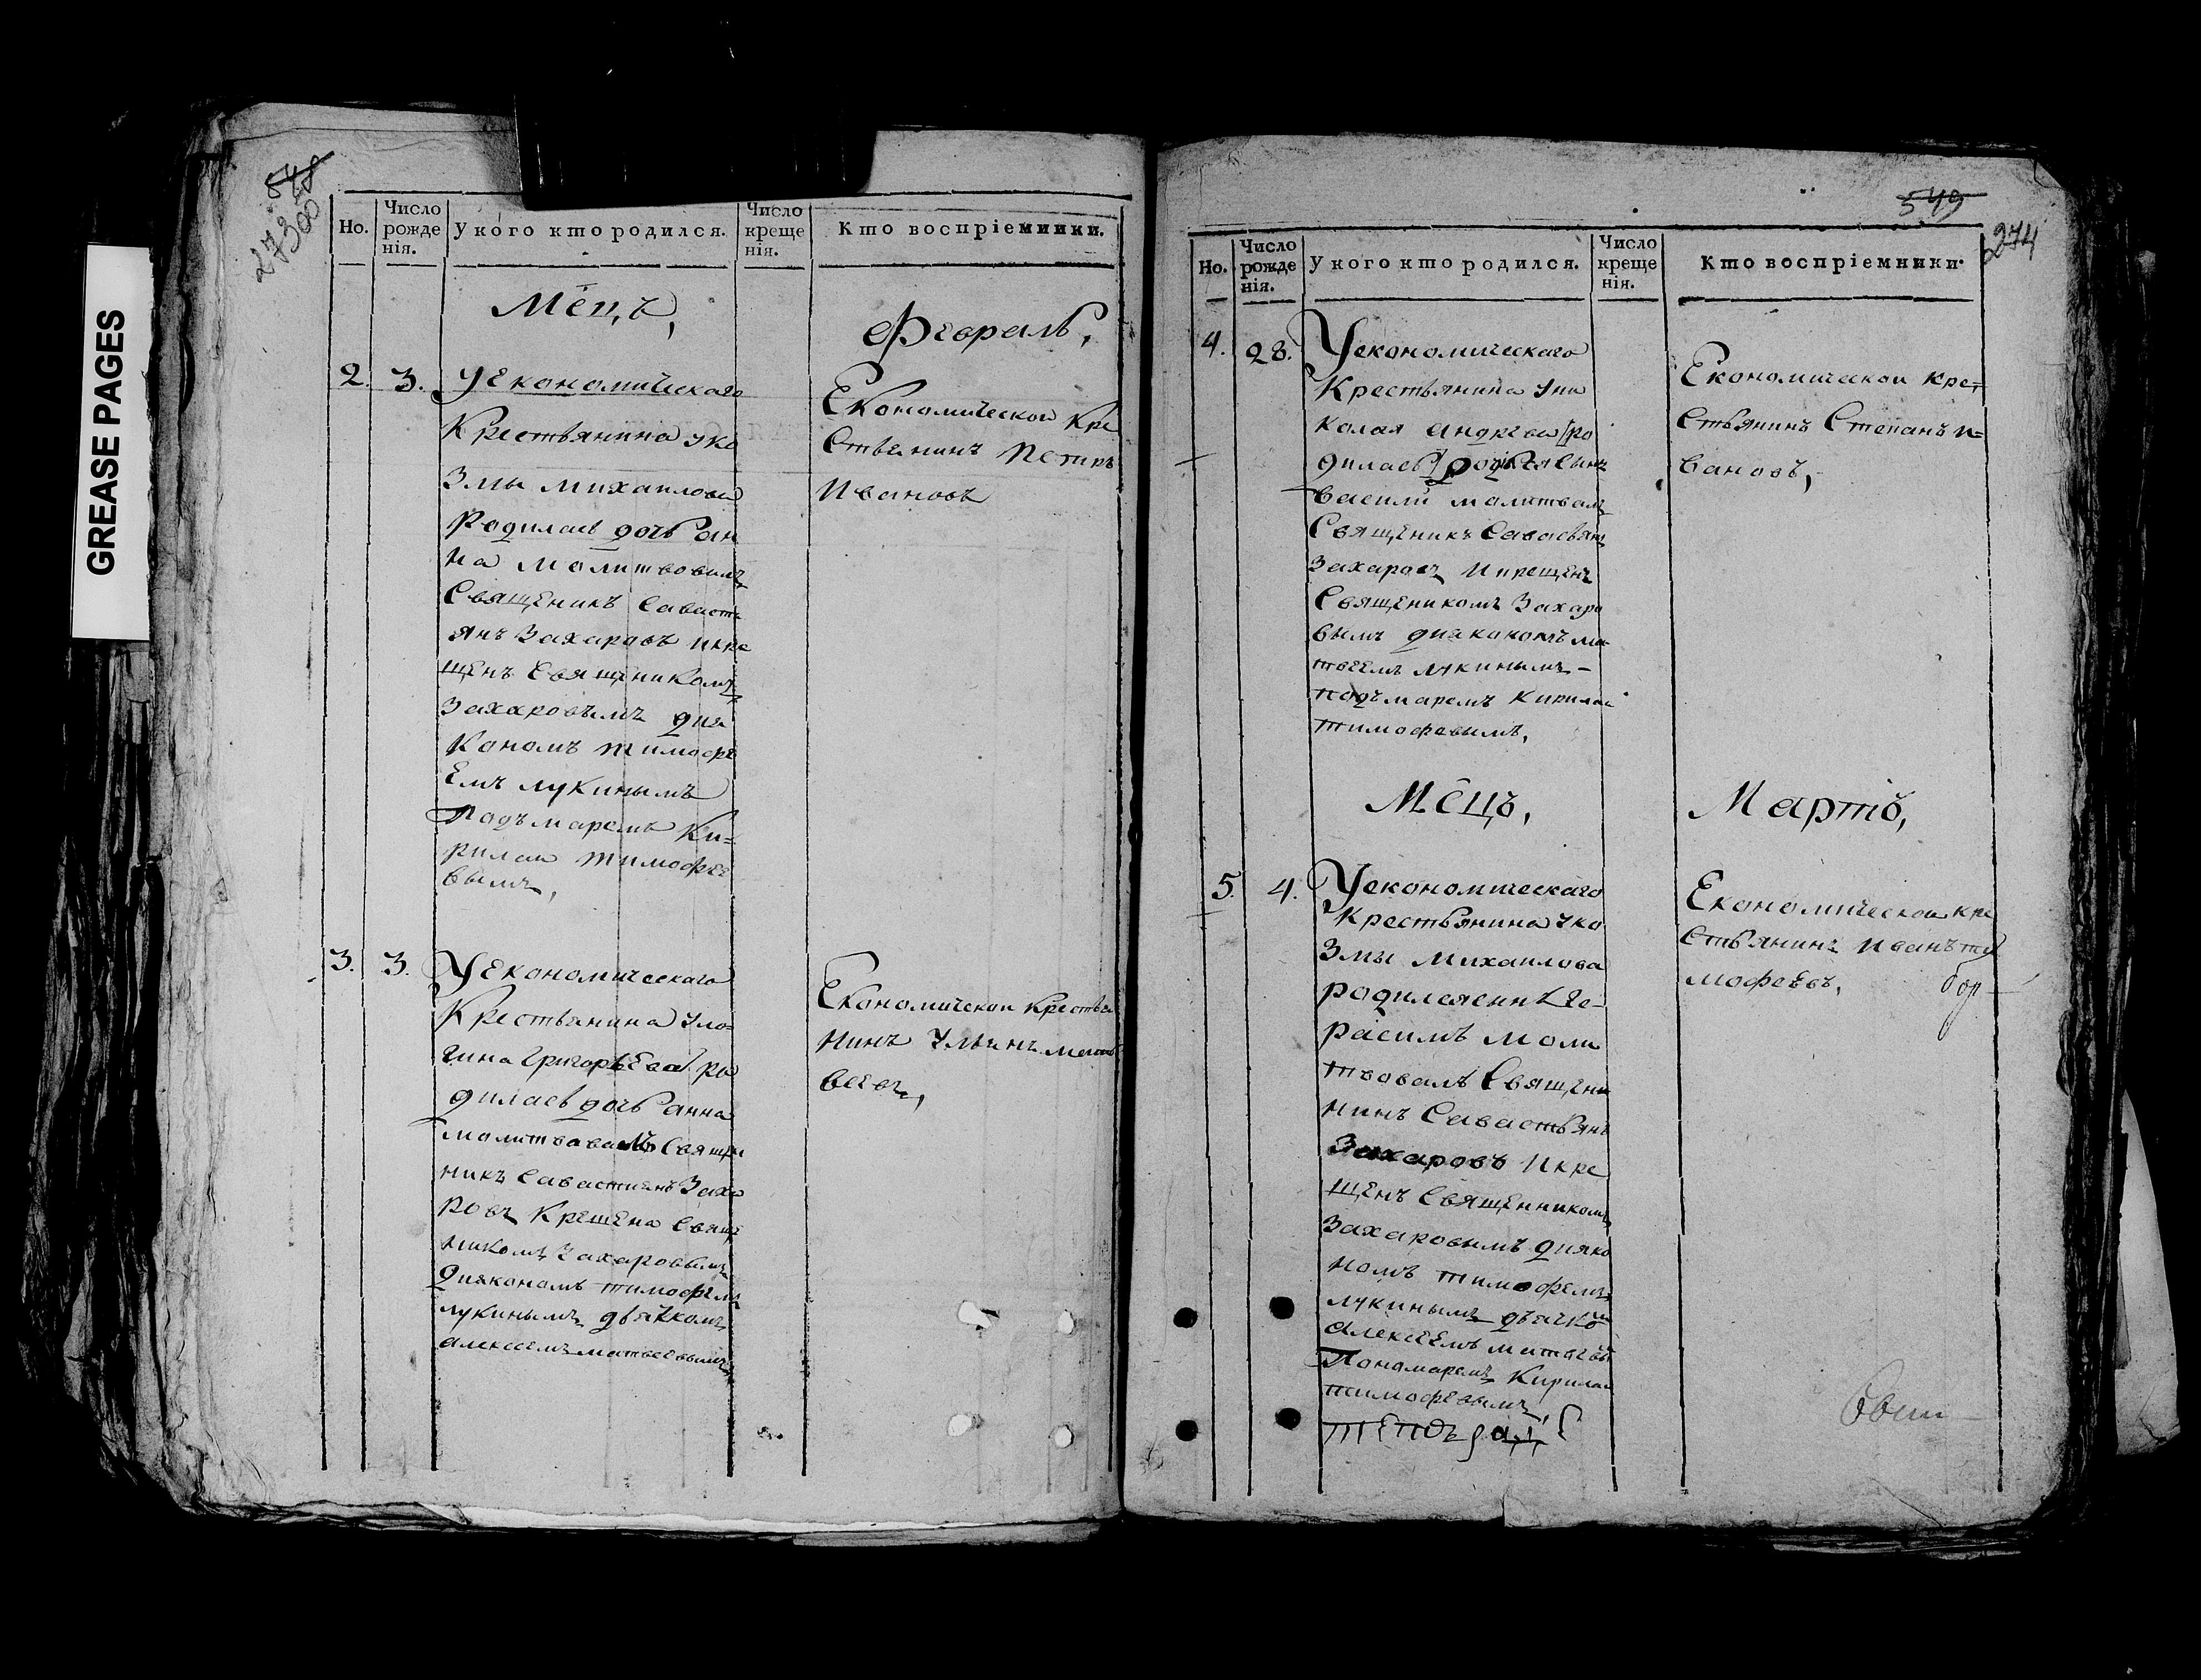 GREASE PAGES
548
273 об
Но.
Число рожденія.
У кого кто родился.
Число крещенія.
Кто воспріемники.
Мсцъ,
Февраль,
2.
3.
У економическаго
Крестьянина Уко
змы михаилова
Родилась дочь ан
на молитвовалъ
Священикъ Саваcть
янъ Захаровъ икре
щенъ Священикомъ
Захаровымъ дия
кономъ тимофе
емъ лукинымъ
Подъмаремъ Ки=
рилаи тимофее
вымъ,
Економическои Кре
стьянинъ Петръ
Ивановъ
3.
3.
У економическаго
Крестьянина Уло
гина григорьева ро
дилась дочь анна
молитвавалъ Свяще
никъ Савастианъ Заха
ровъ Крещена Свяще
никомъ Захаровымъ
Дияконамъ тимофемъ
лукинымъ дьячкомъ
алексеемъ матвеевымъ
Економическои Крестья
нинъ Ульянъ мат
веевъ,
549
274
Но.
Число рожденія.
У кого кто родился.
Число крещенія.
Кто воспріемники.
4.
28.
У економическаго
Крестьянина Уни
колая андреева ро
дилась родился сынъ
Васили молитвалъ
Священикъ Савасьянъ
Захаровъ Икрещенъ
Священикомъ Захаро
вымъ диякономъ ма
твеемъ лукинымъ-
подъмаремъ Кирилаи
тимофевымъ,
Економическои кре=
стьянинъ Степанъ И=
вановъ,
Мсцъ,
Мартъ,
5.
4.
У економическаго
Крестьянина Уко
змы Михаилова
родилса снъ Ге-
расимъ моли
твовалъ Священи
никъ Савастьянъ
Захаровъ Икре
щенъ Священникомъ
Захаровымъ дияко
номъ тимофемъ
лукинымъ дьячко
алексеемъ матвевы
Пономаремъ Кирилаи
тимофевымъ,
Економическои кре
стьянинъ Иванъ ти
мофеевъ,